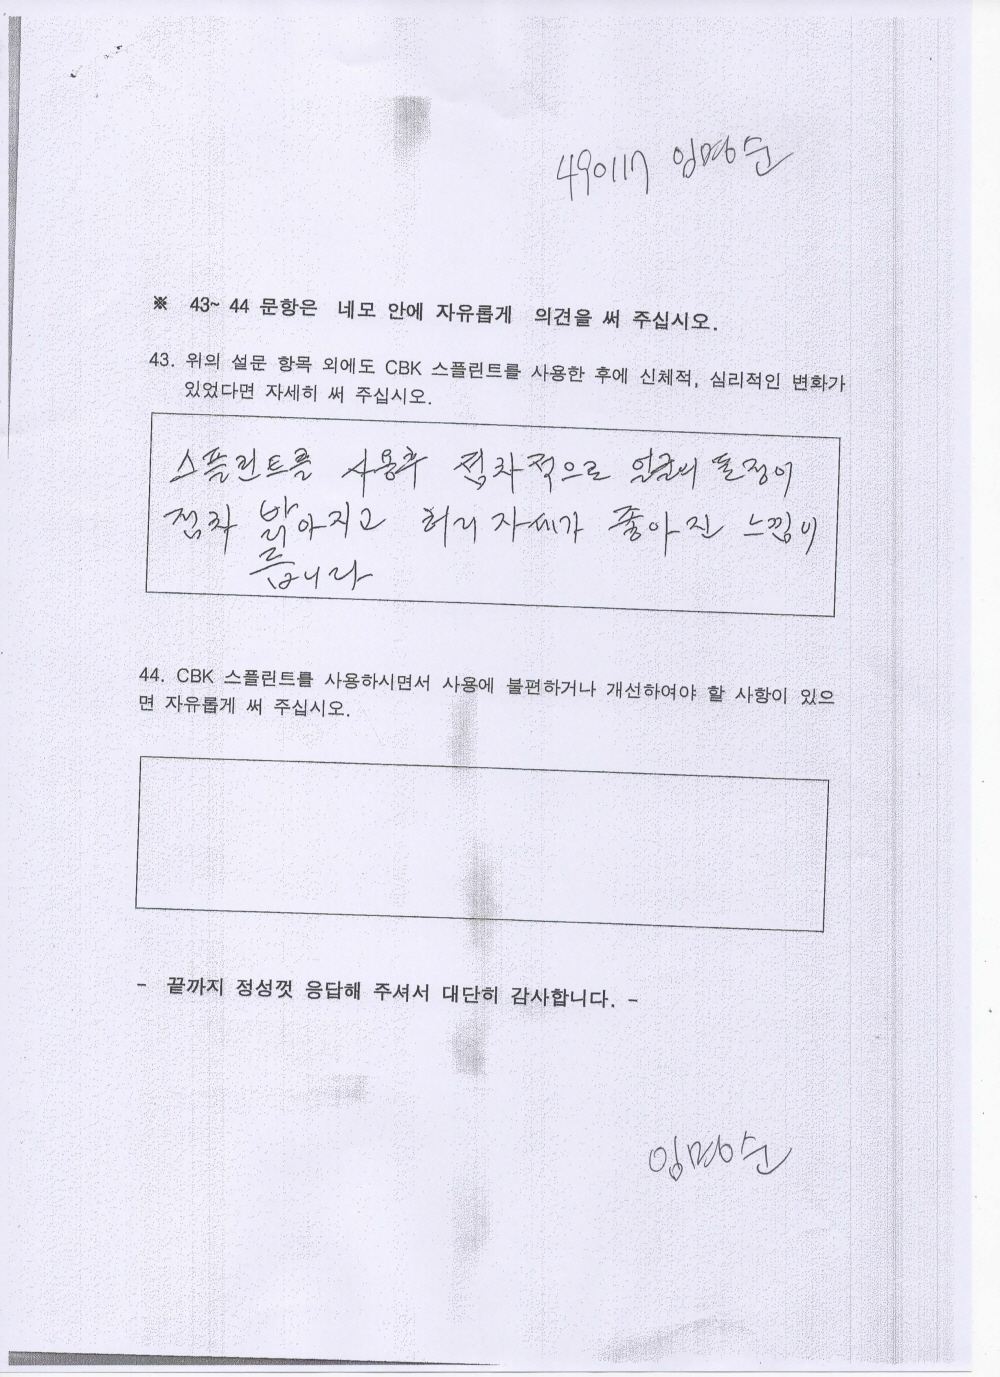 490117 임명순
※ 43~ 44 문항은 네모 안에 자유롭게 의견을 써 주십시오.
43. 위의 설문 항목 외에도 CBK 스플린트를 사용한 후에 신체적, 심리적인 변화가
있었다면 자세히 써 주십시오.
스플린트를 사용후 점차적으로 얼굴의 표정이
점차 밝아지고 허리 자세가 좋아진 느낌이
듭니다
44. CBK 스플린트를 사용하시면서 사용에 불편하거나 개선하여야 할 사항이 있으
면 자유롭게 써 주십시오.
- 끝까지 정성껏 응답해 주셔서 대단히 감사합니다. -
임명순